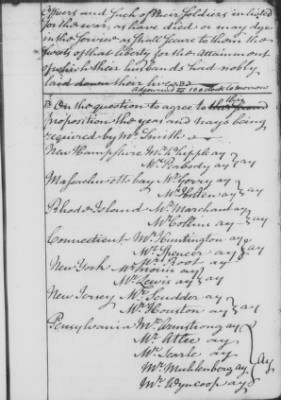 officers and such of their Soldiers inlisted
for the war, as have died or may dye
in the service as shall leave to them the
sweets of that liberty for the attainment
of which their husbands had nobly
laid down their lives
adjourned to 10 o Clock to morrow
On the question to agree to this
proposition the yeas and nays being
required by Mr Smith
New Hampshire Mr Whipple ay
Mr Peabody ay ay
Massachusettsbay Mr Gerry ay
Mr Holten ay ay
Rhode Island Mr Marchant ay
Mr Collins ay ay
Connecticut Mr Huntington ay
Mr Spencer ay ay
Mr Root ay
New York Mr Morris ay
Mr Lewis ay ay
New Jersey Mr Scudder ay
Mr Houston ay ay
Pensylvania Mr Armstrong ay
Mr Atlee ay
Mr Searle ay
Mr Muhlenberg ay ay
Mr Wyncoop ay